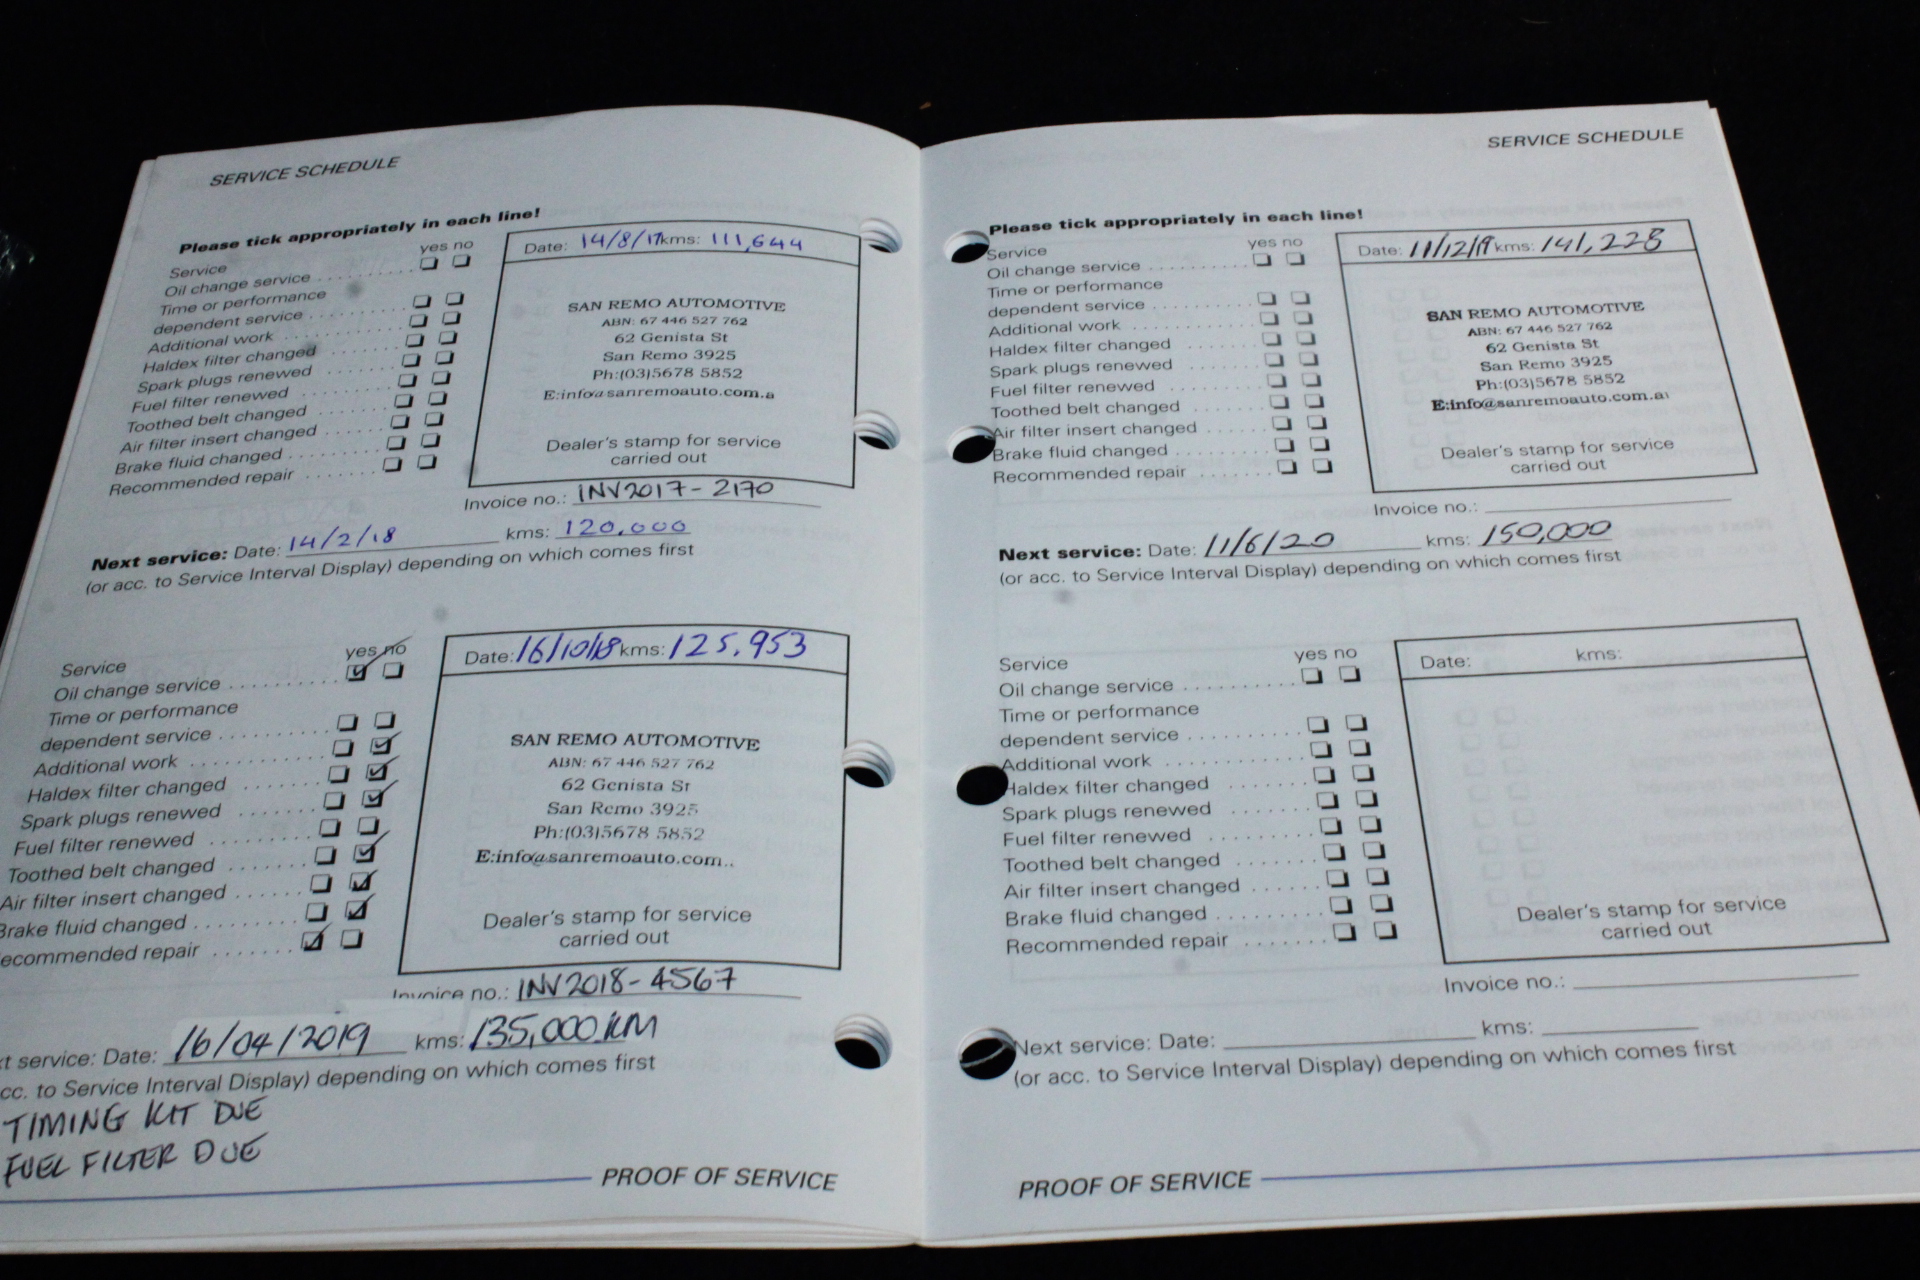 SERVICE SCHEDULE
Please tick appropriately in each line!
yes no
Service
Oil change service
Time or performance
dependent service
Additional work
Haldex filter changed
Spark plugs renewed
Fuel filter renewed
Toothed belt changed
Air filter insert changed
Brake fluid changed
Recommended repair
Date: 14/8/17 kms: 111,644
SAN REMO AUTOMOTIVE
ABN: 67 446 527 762
62 Genista St
San Remo 3925
Ph:(03)5678 5852
E:info@sanremoauto.com.a
Dealer's stamp for service
carried out
Invoice no.: INV2017-2170
Next service: Date: 14/2/18 kms: 120.000
(or acc. to Service Interval Display) depending on which comes first
yes no
Service
Oil change service
Time or performance
dependent service
Additional work
Haldex filter changed
Spark plugs renewed
Fuel filter renewed
Toothed belt changed
Air filter insert changed
Brake fluid changed
ecommended repair
Date: 16/10/18 kms: 125,953
SAN REMO AUTOMOTIVE
ABN: 67 446 527 762
62 Genista St
San Remo 3925
Ph:(03)5678 5852
E:info@sanremoauto.com..
Dealer's stamp for service
carried out
Invoice no.: INV2018-4567
xt service: Date: 16/04/2019 kms: 135,000 KM
cc. to Service Interval Display) depending on which comes first
TIMING KIT DUE
FUEL FILTER DUE
PROOF OF SERVICE
SERVICE SCHEDULE
Please tick appropriately in each line!
yes no
Service
Oil change service
Time or performance
dependent service
Additional work
Haldex filter changed
Spark plugs renewed
Fuel filter renewed
Toothed belt changed
Air filter insert changed
Brake fluid changed
Recommended repair
Date: 11/12/19 kms: 141,228
SAN REMO AUTOMOTIVE
ABN: 67 446 527 762
62 Genista St
San Remo 3925
Ph:(03)5678 5852
E:info@sanremoauto.com.a
Dealer's stamp for service
carried out
Invoice no.:
Next service: Date: 11/6/20 kms: 150,000
(or acc. to Service Interval Display) depending on which comes first
yes no
Service
Oil change service
Time or performance
dependent service
Additional work
Haldex filter changed
Spark plugs renewed
Fuel filter renewed
Toothed belt changed
Air filter insert changed
Brake fluid changed
Recommended repair
Date: kms:
Dealer's stamp for service
carried out
Invoice no.:
Next service: Date: kms:
(or acc. to Service Interval Display) depending on which comes first
PROOF OF SERVICE